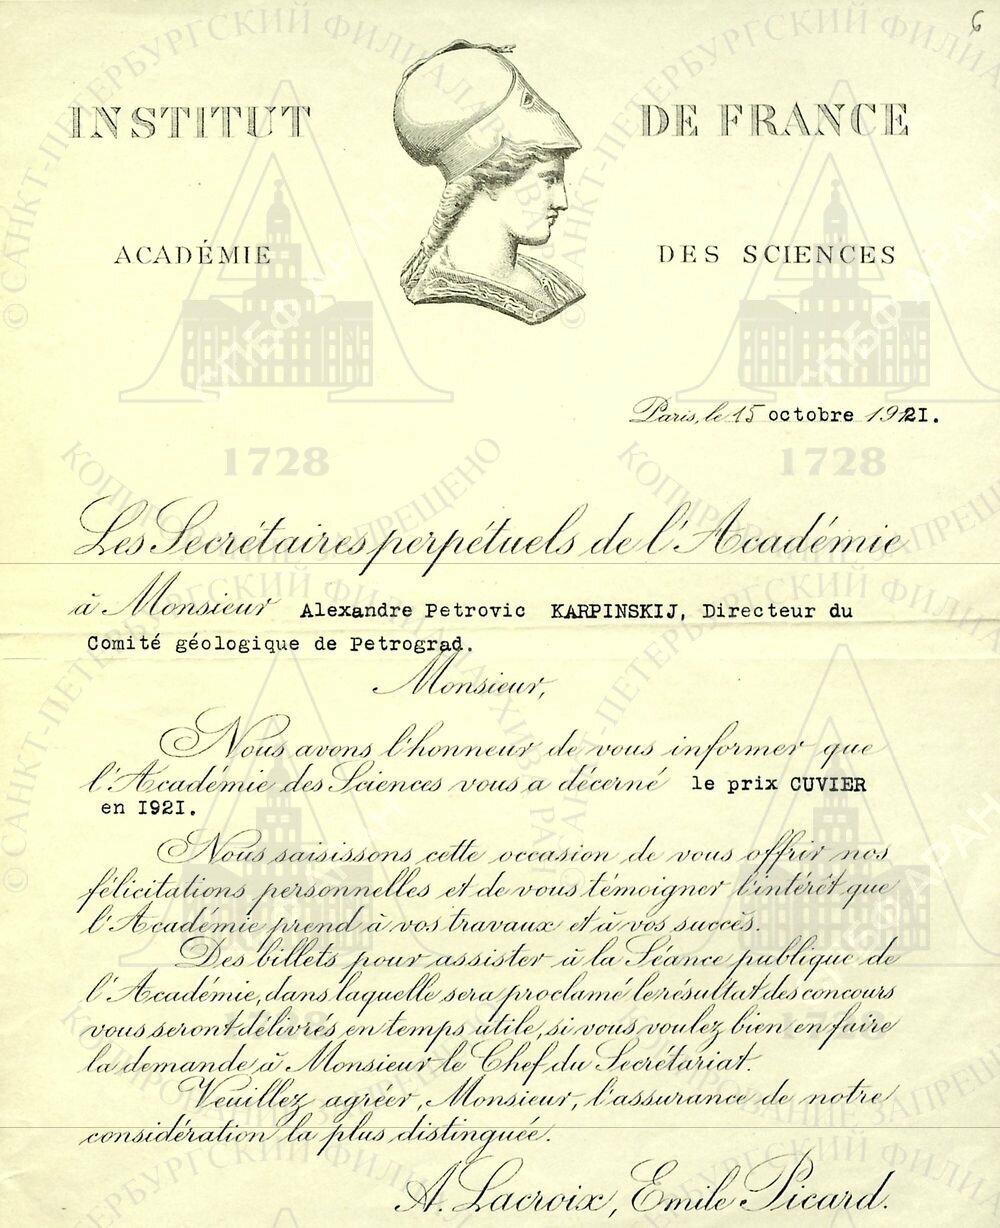 6
INSTITUT DE FRANCE
ACADÉMIE DES SCIENCES
Paris, le 15 octobre 1921.
Les Secrétaires perpétuels de l'Académie
à Monsieur Alexandre Petrovic KARPINSKIJ, Directeur du
Comité géologique de Petrograd.
Monsieur,
Nous avons l'honneur de vous informer que
l'Académie des Sciences vous a décerné le prix CUVIER
en I92I.
Nous saisissons cette occasion de vous offrir nos
félicitations personnelles et de vous témoigner l'intérêt que
l'Académie prend à vos travaux et à vos succès.
Des billets pour assister à la Séance publique de
l'Académie, dans laquelle sera proclamé le résultat des concours
vous seront délivrés en temps utile, si vous voulez bien en faire
la demande à Monsieur le Chef du Secrétariat.
Veuillez agréer, Monsieur, l'assurance de notre
considération la plus distinguée.
A. Lacroix, Emile Picard.
© САНКТ-ПЕТЕРБУРГСКИЙ ФИЛИАЛ АРХИВА РАН
СПбФ АРАН
1728
КОПИРОВАНИЕ ЗАПРЕЩЕНО